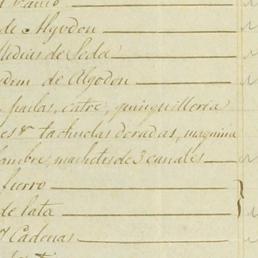 de Algodon
Medias de Seda
Ydem de Algodon
frailas, catre, quinquilleria
es & tachuelas doradas, maquina
ambre, machetes de 3 canales
fierro
de lata
Y Cadenas